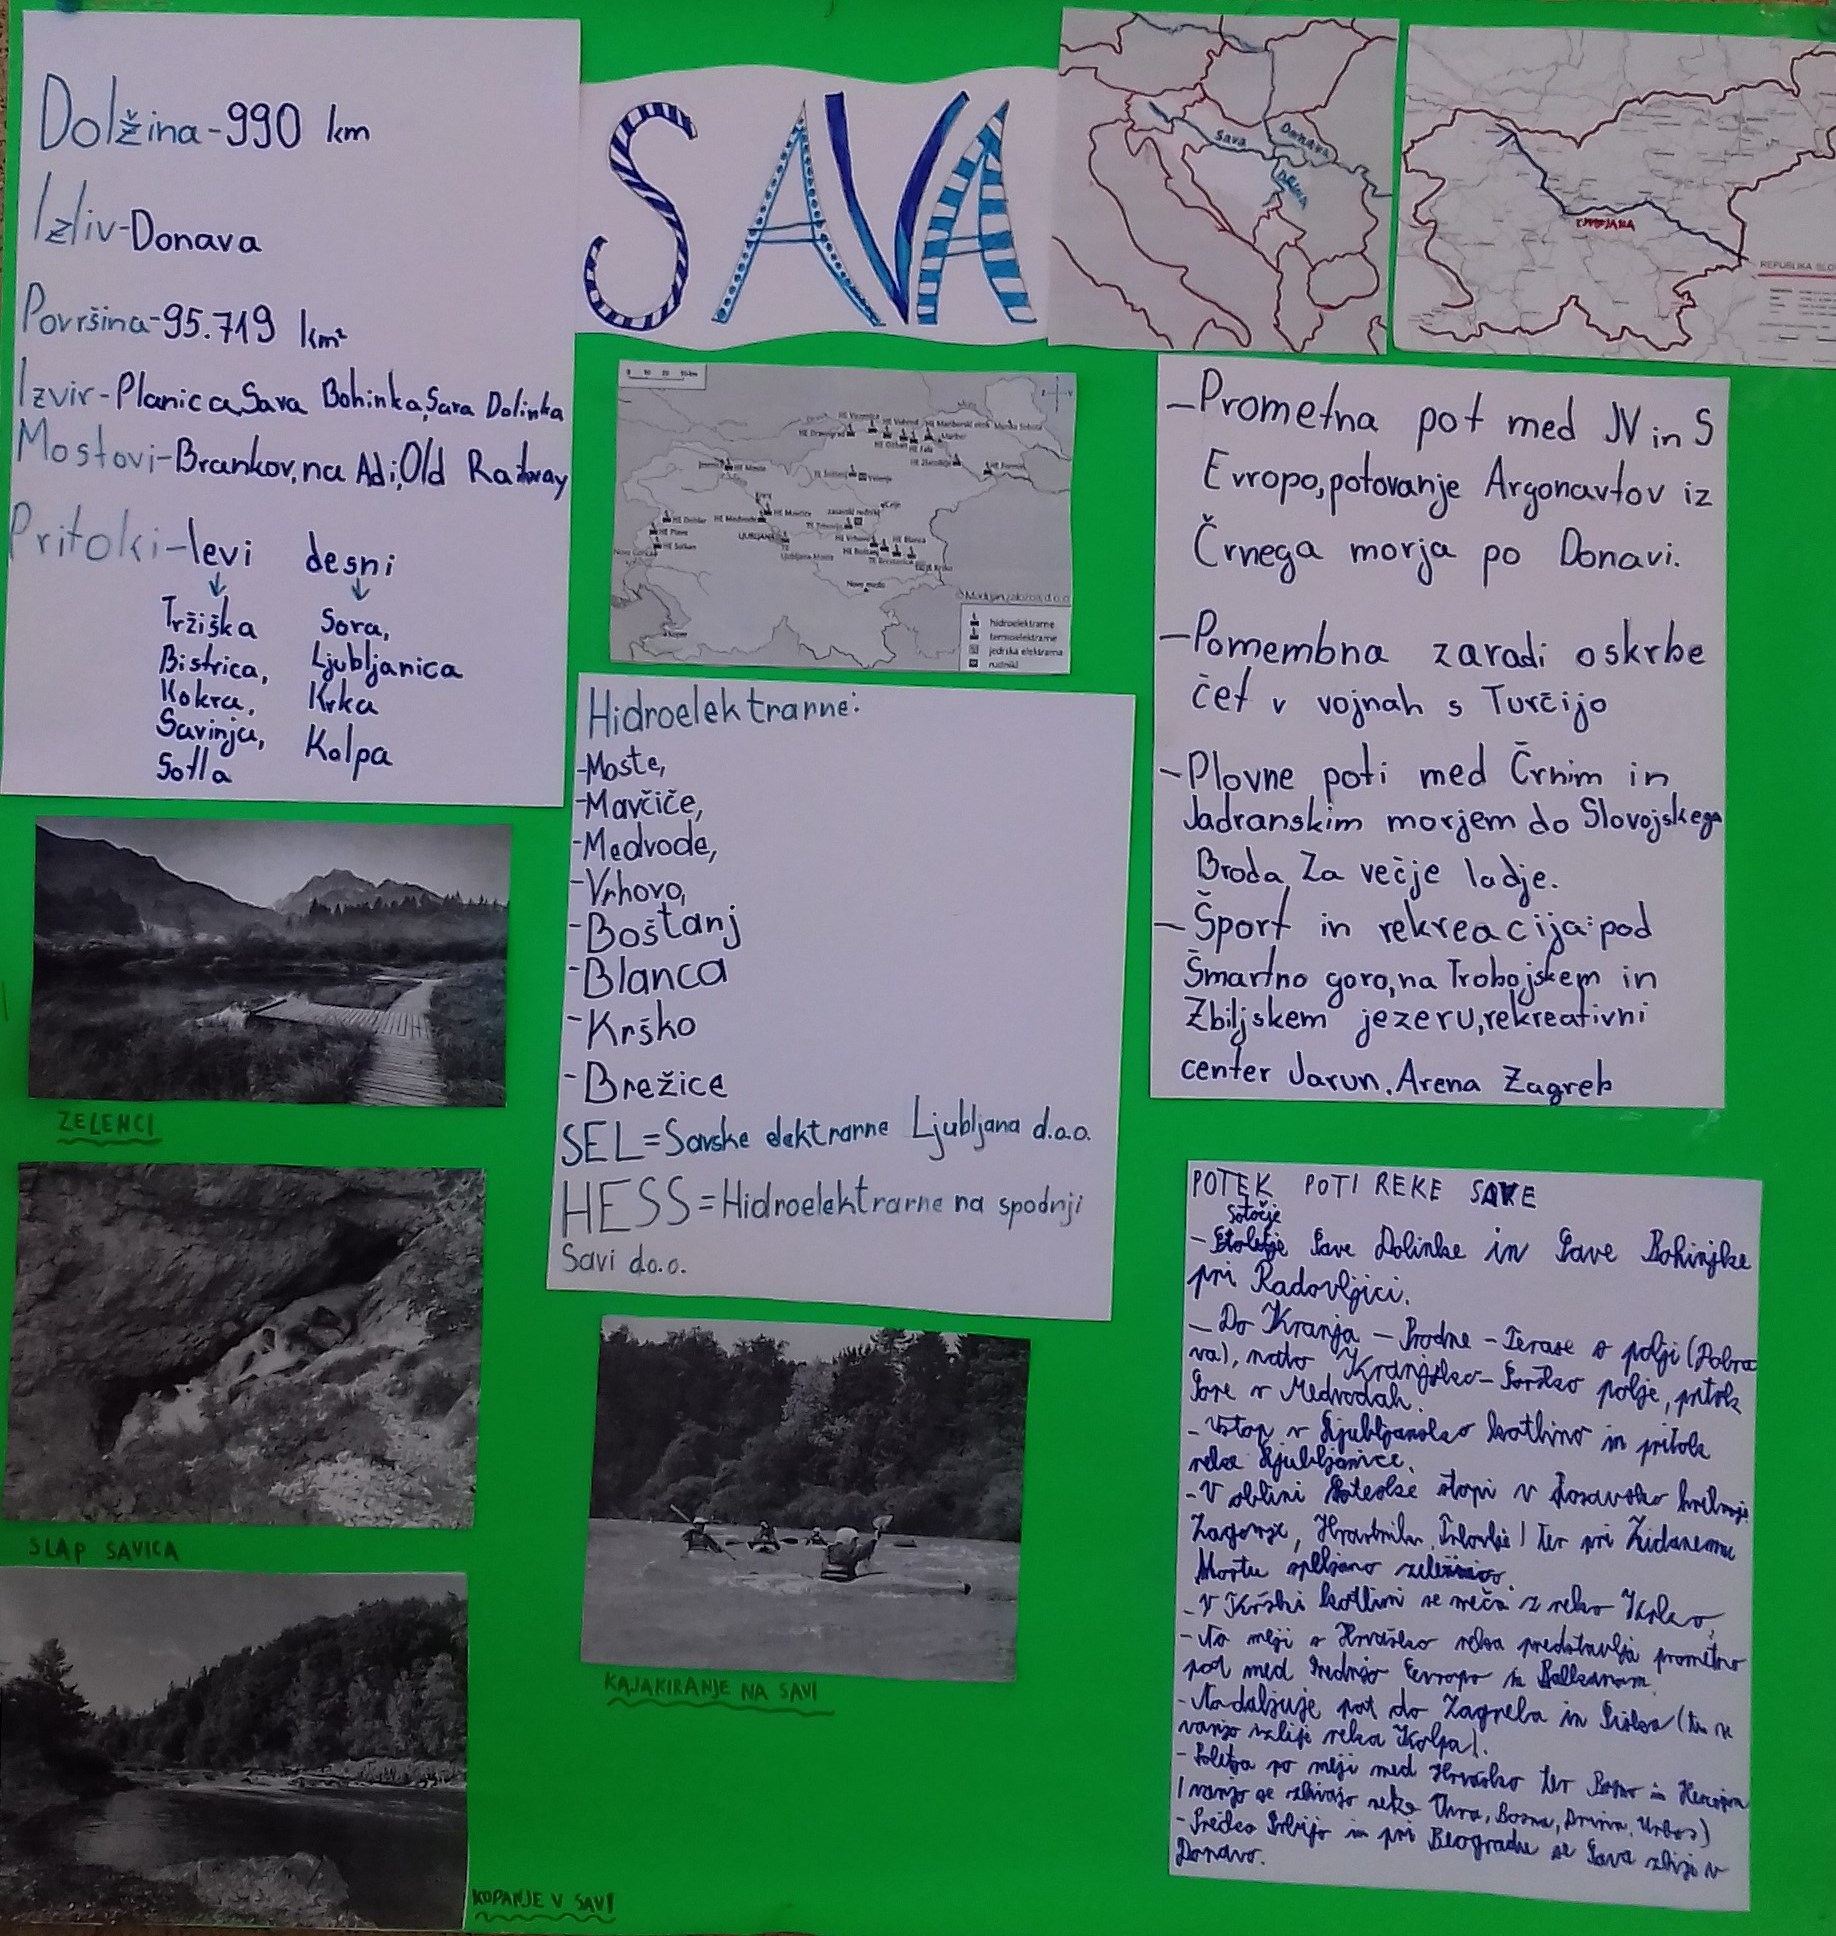 Dolžina-990 km
Izliv-Donava
Površina-95.719 km²
Izvir-Planica,Sava Bohinka,Sava Dolinka
Mostovi-Brankov,na Adi,Old Railway
Pritoki-levi desni
Tržiška
Bistrica,
Kokra,
Savinja,
Sotla
Sora,
Ljubljanica
Krka
Kolpa
SAVA
Sava
Donava
DRINA
LJUBLJANA
REPUBLIKA SLO
hidroelektrarne
termoelektrarne
jedrska elektrarna
rudniki
Hidroelektrarne:
-Moste,
-Mavčiče,
-Medvode,
-Vrhovo,
-Boštanj
-Blanca
-Krško
-Brežice
SEL=Savske elektrarne Ljubljana d.o.o.
HESS=Hidroelektrarne na spodnji
Savi d.o.o.
-Prometna pot med JV in S
Evropo,potovanje Argonavtov iz
Črnega morja po Donavi.
-Pomembna zaradi oskrbe
čet v vojnah s Turčijo
-Plovne poti med Črnim in
Jadranskim morjem do Slovojskega
Broda za večje ladje.
-Šport in rekreacija:pod
Šmartno goro,na Trbojskem in
Zbiljskem jezeru,rekreativni
center Jarun.Arena Zagreb
ZELENCI
SLAP SAVICA
KOPANJE V SAVI
KAJAKIRANJE NA SAVI
POTEK POTI REKE SAVE
Sotočje
- Save Dolinke in Save Bohinjke
pri Radovljici.
- Do Kranja - Prodne - Terase s polji (Dobra
va), nato Kranjsko-Sorško polje, pritok
Sore v Medvodah.
- Vstop v Ljubljansko kotlino in pritok
reke Ljubljanice.
- V stopi v Posavsko hribovje
Zagorje, Hrastnik, Trbovlje) ter pri Zidanemu
Mostu železnico.
- V Krški kotlini se sreča z reko Krko,
- Na meji s Hrvaško reka predstavlja prometno
pot med Srednjo Evropo in Balkanom.
- Nadaljuje pot do Zagreba in Siska (tu se
vanjo izlije reka Kolpa).
- po meji med Hrvaško ter Bosno in Hercegov
(vanjo se zlivajo reke Una, Bosna, Drina, Vrbas)
- Prečka Srbijo in pri Beogradu se Sava zlije v
Donavo.